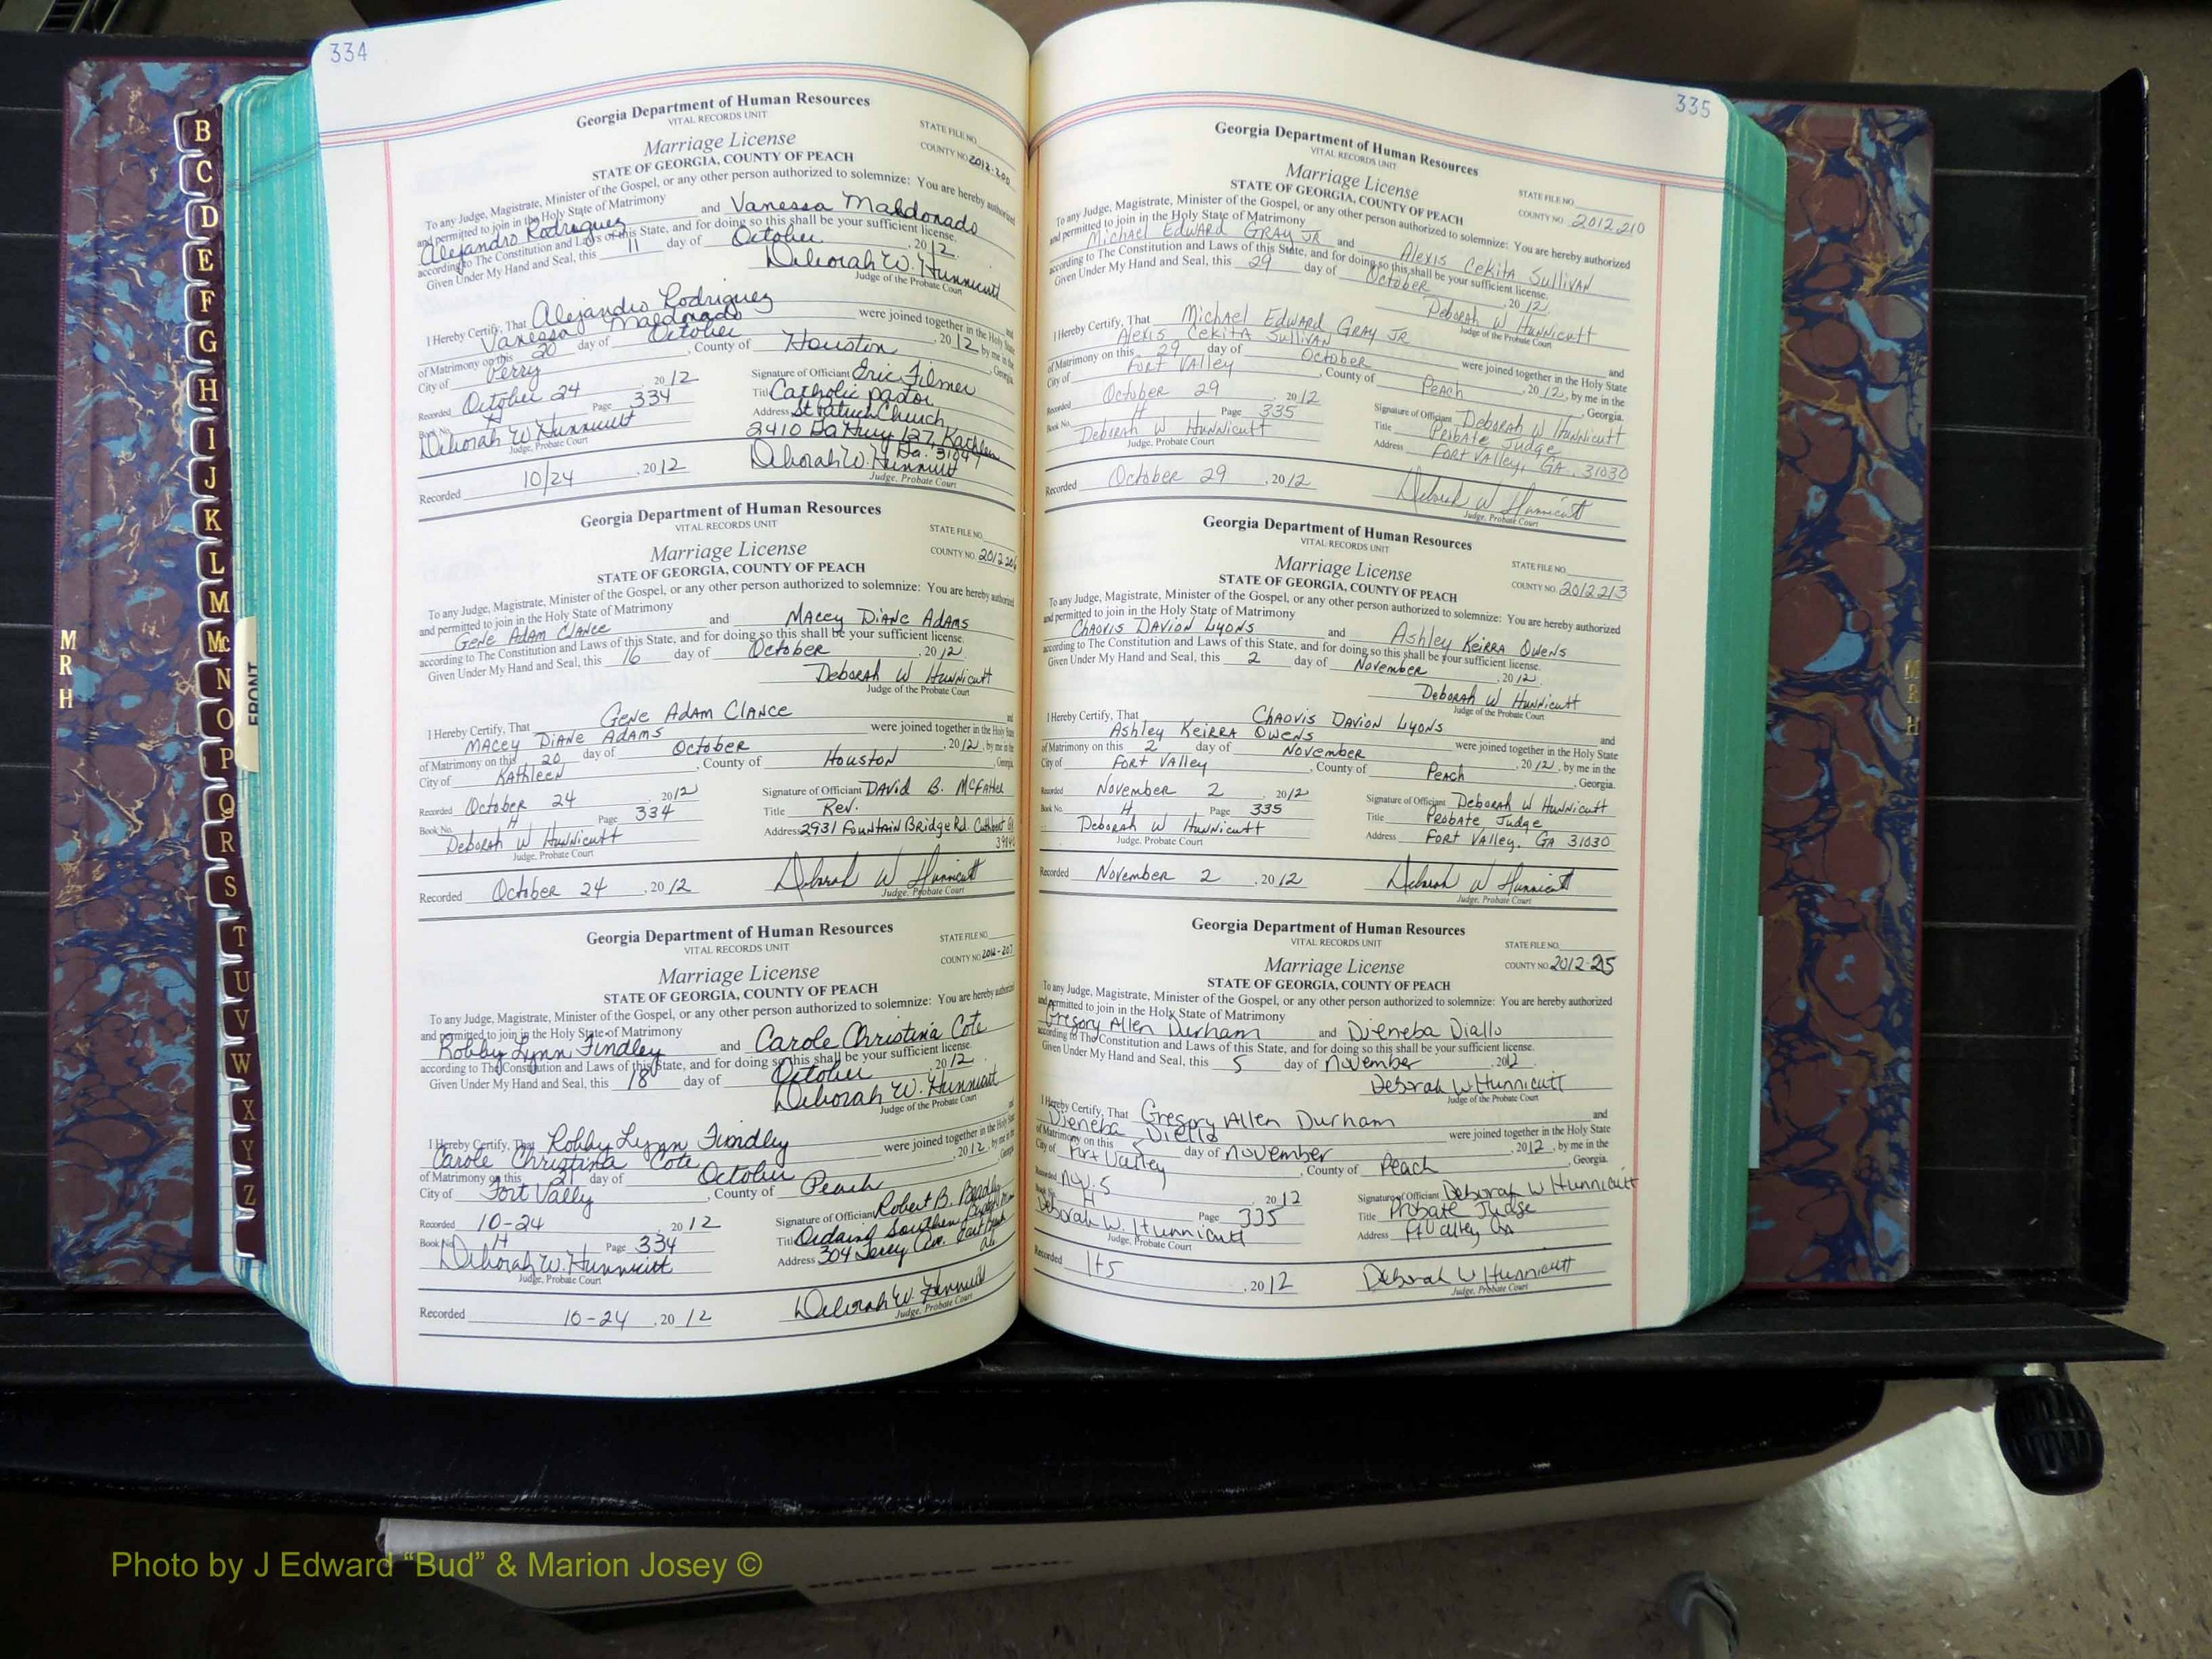 334
Georgia Department of Human Resources
VITAL RECORDS UNIT
STATE FILE NO.
Marriage License
COUNTY NO. 2012-200
STATE OF GEORGIA, COUNTY OF PEACH
To any Judge, Magistrate, Minister of the Gospel, or any other person authorized to solemnize: You are hereby authorized
and permitted to join in the Holy State of Matrimony
Alejandro Rodriguez and Vanessa Maldonado
according to The Constitution and Laws of this State, and for doing so this shall be your sufficient license.
Given Under My Hand and Seal, this 11 day of October, 2012.
Deborah W. Hunnicutt
Judge of the Probate Court
I Hereby Certify, That Alejandro Rodriguez and
Vanessa Maldonado were joined together in the Holy State
of Matrimony on this 20 day of October, 2012, by me in the
City of Perry, County of Houston, Georgia.
Recorded October 24 2012
Signature of Officiant Eric Filmer
Book No. H Page 334
Title Catholic pastor
Deborah W Hunnicutt
Address St Patrick Church
Judge, Probate Court
2410 Ga Hwy 127 Kathleen
Ga. 31047
Recorded 10/24, 2012
Deborah W. Hunnicutt
Judge, Probate Court
Georgia Department of Human Resources
VITAL RECORDS UNIT
STATE FILE NO.
Marriage License
COUNTY NO. 2012 206
STATE OF GEORGIA, COUNTY OF PEACH
To any Judge, Magistrate, Minister of the Gospel, or any other person authorized to solemnize: You are hereby authorized
and permitted to join in the Holy State of Matrimony
Gene Adam Clance and Macey Diane Adams
according to The Constitution and Laws of this State, and for doing so this shall be your sufficient license.
Given Under My Hand and Seal, this 16 day of October, 2012.
Deborah W Hunnicutt
Judge of the Probate Court
I Hereby Certify, That Gene Adam Clance and
Macey Diane Adams were joined together in the Holy State
of Matrimony on this 20 day of October, 2012, by me in the
City of Kathleen, County of Houston, Georgia.
Recorded October 24, 2012
Signature of Officiant David B. McFather
Book No. H Page 334
Title Rev.
Deborah W Hunnicutt
Address 2931 Fountain Bridge Rd. Cuthbert
Judge, Probate Court
Recorded October 24, 2012
Deborah W Hunnicutt
Judge, Probate Court
Georgia Department of Human Resources
VITAL RECORDS UNIT
STATE FILE NO.
Marriage License
COUNTY NO. 2012-207
STATE OF GEORGIA, COUNTY OF PEACH
To any Judge, Magistrate, Minister of the Gospel, or any other person authorized to solemnize: You are hereby authorized
and permitted to join in the Holy State of Matrimony
Robby Lynn Findley and Carole Christina Cote
according to The Constitution and Laws of this State, and for doing so this shall be your sufficient license.
Given Under My Hand and Seal, this 18 day of October, 2012.
Deborah W. Hunnicutt
Judge of the Probate Court
I Hereby Certify, That Robby Lynn Findley and
Carole Christina Cote were joined together in the Holy State
of Matrimony on this 21 day of October, 2012, by me in the
City of Fort Vally, County of Peach, Georgia.
Recorded 10-24, 2012
Signature of Officiant Robert B.
Book No. H Page 334
Title Ordaing Southern
Deborah W. Hunnicutt
Address 304
Judge, Probate Court
Recorded 10-24, 2012
Deborah W. Hunnicutt
Judge, Probate Court
335
Georgia Department of Human Resources
VITAL RECORDS UNIT
STATE FILE NO.
Marriage License
COUNTY NO. 2012 210
STATE OF GEORGIA, COUNTY OF PEACH
To any Judge, Magistrate, Minister of the Gospel, or any other person authorized to solemnize: You are hereby authorized
and permitted to join in the Holy State of Matrimony
Michael Edward Gray Jr and Alexis Cekita Sullivan
according to The Constitution and Laws of this State, and for doing so this shall be your sufficient license.
Given Under My Hand and Seal, this 29 day of October, 2012.
Deborah W Hunnicutt
Judge of the Probate Court
I Hereby Certify, That Michael Edward Gray Jr and
Alexis Cekita Sullivan were joined together in the Holy State
of Matrimony on this 29 day of October, 2012, by me in the
City of Fort Valley, County of Peach, Georgia.
Recorded October 29, 2012
Signature of Officiant Deborah W Hunnicutt
Book No. H Page 335
Title Probate Judge
Deborah W Hunnicutt
Address Fort Valley, GA 31030
Judge, Probate Court
Recorded October 29, 2012
Deborah W Hunnicutt
Judge, Probate Court
Georgia Department of Human Resources
VITAL RECORDS UNIT
STATE FILE NO.
Marriage License
COUNTY NO. 2012 213
STATE OF GEORGIA, COUNTY OF PEACH
To any Judge, Magistrate, Minister of the Gospel, or any other person authorized to solemnize: You are hereby authorized
and permitted to join in the Holy State of Matrimony
Chaovis Davion Lyons and Ashley Keirra Owens
according to The Constitution and Laws of this State, and for doing so this shall be your sufficient license.
Given Under My Hand and Seal, this 2 day of November, 2012.
Deborah W Hunnicutt
Judge of the Probate Court
I Hereby Certify, That Chaovis Davion Lyons and
Ashley Keirra Owens were joined together in the Holy State
of Matrimony on this 2 day of November, 2012, by me in the
City of Fort Valley, County of Peach, Georgia.
Recorded November 2, 2012
Signature of Officiant Deborah W Hunnicutt
Book No. H Page 335
Title Probate Judge
Deborah W Hunnicutt
Address Fort Valley, GA 31030
Judge, Probate Court
Recorded November 2, 2012
Deborah W Hunnicutt
Judge, Probate Court
Georgia Department of Human Resources
VITAL RECORDS UNIT
STATE FILE NO.
Marriage License
COUNTY NO. 2012-215
STATE OF GEORGIA, COUNTY OF PEACH
To any Judge, Magistrate, Minister of the Gospel, or any other person authorized to solemnize: You are hereby authorized
and permitted to join in the Holy State of Matrimony
Gregory Allen Durham and Dieneba Diallo
according to The Constitution and Laws of this State, and for doing so this shall be your sufficient license.
Given Under My Hand and Seal, this 5 day of November, 2012.
Deborah W Hunnicutt
Judge of the Probate Court
I Hereby Certify, That Gregory Allen Durham and
Dieneba Diello were joined together in the Holy State
of Matrimony on this 5 day of November, 2012, by me in the
City of Firt Valley, County of Peach, Georgia.
Recorded Nov. 5 2012
Signature of Officiant Deborah W Hunnicutt
Book No. H Page 335
Title Probate Judge
Deborah W. Hunnicutt
Address Ft Valley Ga
Judge, Probate Court
Recorded 11-5, 2012
Deborah W Hunnicutt
Judge, Probate Court
B
C
D
E
F
G
H
I
J
K
L
M
Mc
N
O
P
Q
R
S
T
U
V
W
X
Y
Z
FRONT
M
R
H
M
R
H
Photo by J Edward “Bud” & Marion Josey ©